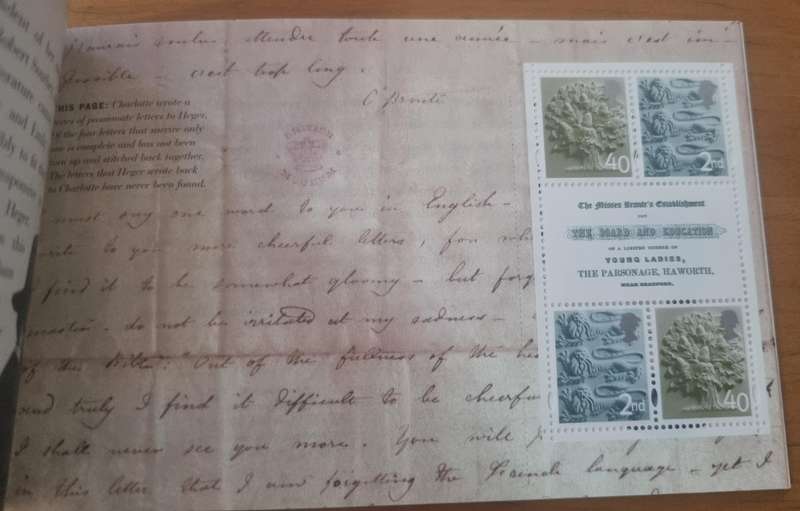 dent of her
Robert Southey
terature can
, and Emil
ibly to fit m
esponsive
Heger.
n this
ham
jamais voulu attendre toute une année – mais c'est im-
possible – c'est trop long.
C Brontë
THIS PAGE: Charlotte wrote a
series of passionate letters to Heger.
Of the four letters that survive only
one is complete and has not been
torn up and stitched back together.
The letters that Heger wrote back
to Charlotte have never been found.
must say one word to you in English –
write to you more cheerful letters, for wh
I find it to be somewhat gloomy – but forg
master – do not be irritated at my sadness –
of the Bible: "Out of the fullness of the he
and truly I find it difficult to be cheerfu
I shall never see you more. You will
in this letter that I am forgetting the French language – yet I
40
2nd
The Misses Brontë's Establishment
FOR
THE BOARD AND EDUCATION
OF A LIMITED NUMBER OF
YOUNG LADIES,
THE PARSONAGE, HAWORTH,
NEAR BRADFORD.
2nd
40